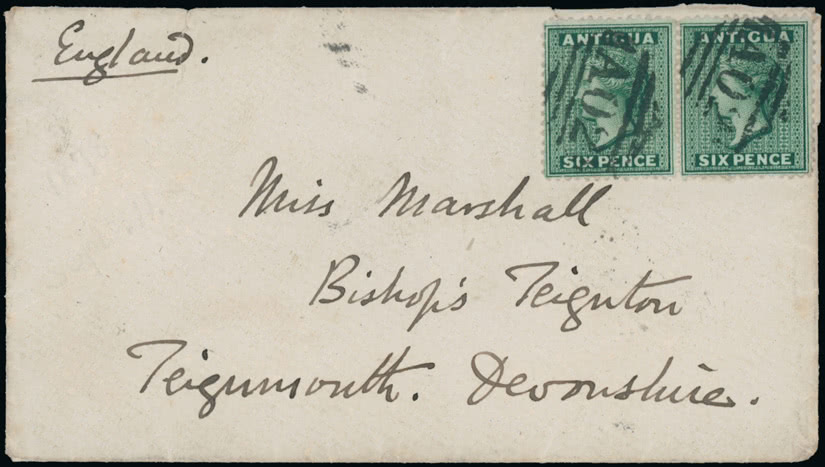 England.
ANTIGUA ANTIGUA
A02 A02
SIX PENCE SIX PENCE
Miss Marshall
Bishop's Teignton
Teignmouth. Devonshire.